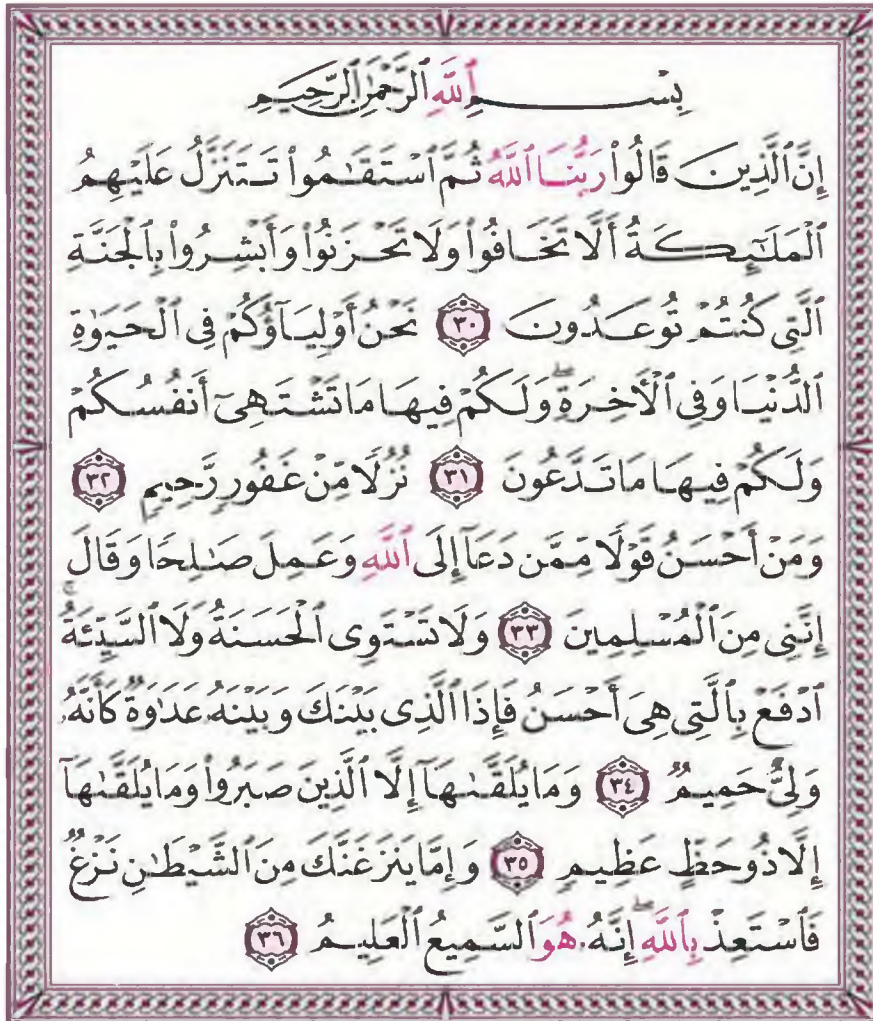 بِسْمِ ٱللَّهِ ٱلرَّحْمَٰنِ ٱلرَّحِيمِ
إِنَّ ٱلَّذِينَ قَالُوا۟ رَبُّنَا ٱللَّهُ ثُمَّ ٱسْتَقَٰمُوا۟ تَتَنَزَّلُ عَلَيْهِمُ
ٱلْمَلَٰٓئِكَةُ أَلَّا تَخَافُوا۟ وَلَا تَحْزَنُوا۟ وَأَبْشِرُوا۟ بِٱلْجَنَّةِ
ٱلَّتِى كُنتُمْ تُوعَدُونَ ٣٠ نَحْنُ أَوْلِيَآؤُكُمْ فِى ٱلْحَيَوٰةِ
ٱلدُّنْيَا وَفِى ٱلْءَاخِرَةِ ۖ وَلَكُمْ فِيهَا مَا تَشْتَهِىٓ أَنفُسُكُمْ
وَلَكُمْ فِيهَا مَا تَدَّعُونَ ٣١ نُزُلًا مِّنْ غَفُورٍ رَّحِيمٍ ٣٢
وَمَنْ أَحْسَنُ قَوْلًا مِّمَّن دَعَآ إِلَى ٱللَّهِ وَعَمِلَ صَٰلِحًا وَقَالَ
إِنَّنِى مِنَ ٱلْمُسْلِمِينَ ٣٣ وَلَا تَسْتَوِى ٱلْحَسَنَةُ وَلَا ٱلسَّيِّئَةُ ۚ
ٱدْفَعْ بِٱلَّتِى هِىَ أَحْسَنُ فَإِذَا ٱلَّذِى بَيْنَكَ وَبَيْنَهُۥ عَدَٰوَةٌ كَأَنَّهُۥ
وَلِىٌّ حَمِيمٌ ٣٤ وَمَا يُلَقَّىٰهَآ إِلَّا ٱلَّذِينَ صَبَرُوا۟ وَمَا يُلَقَّىٰهَآ
إِلَّا ذُو حَظٍّ عَظِيمٍ ٣٥ وَإِمَّا يَنزَغَنَّكَ مِنَ ٱلشَّيْطَٰنِ نَزْغٌ
فَٱسْتَعِذْ بِٱللَّهِ ۖ إِنَّهُۥ هُوَ ٱلسَّمِيعُ ٱلْعَلِيمُ ٣٦